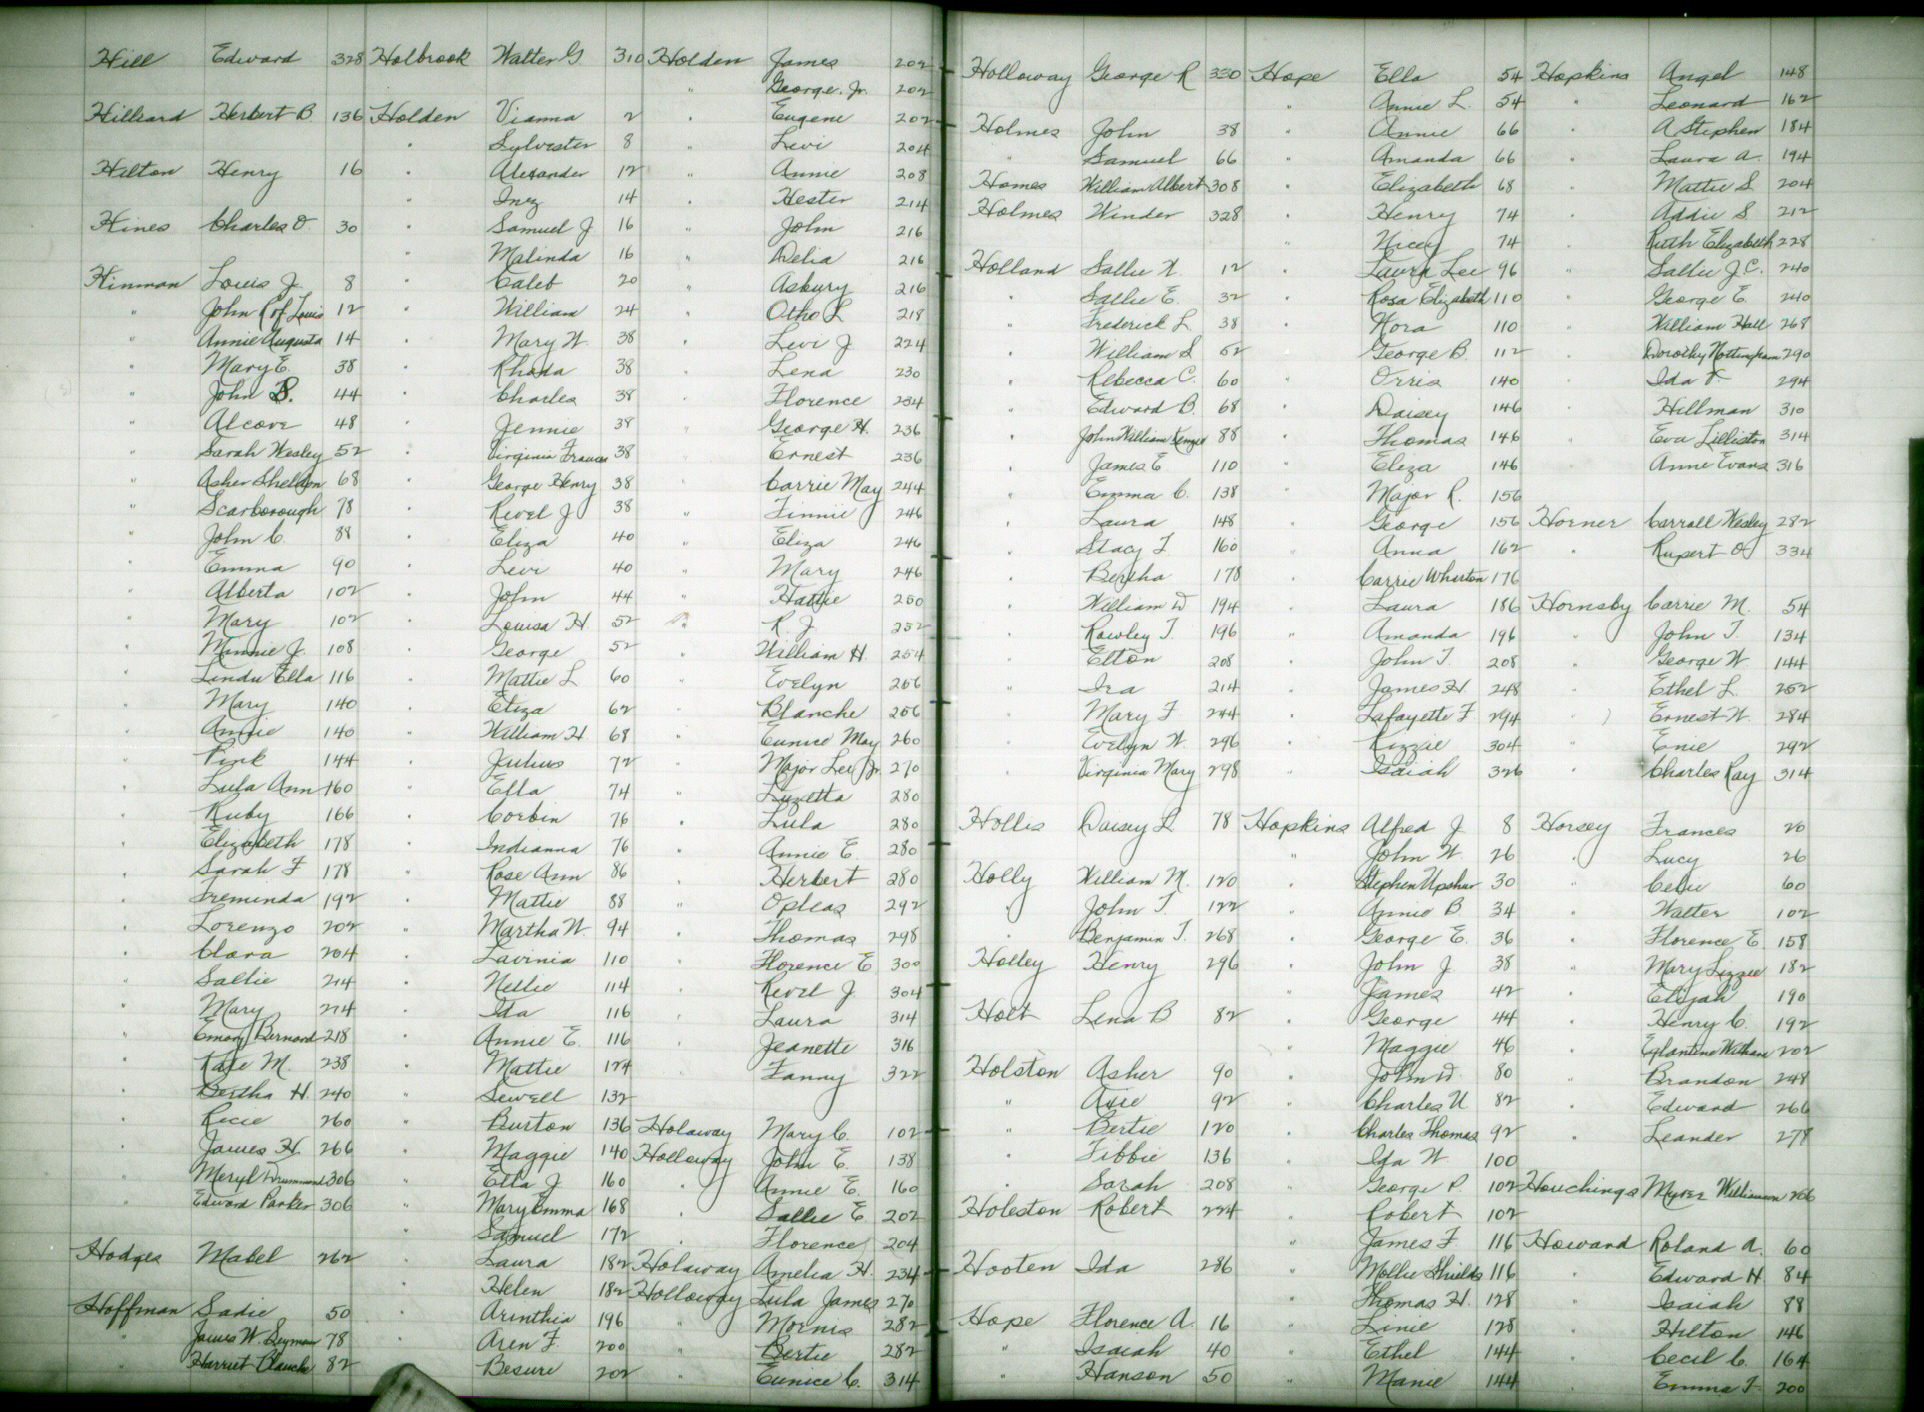 Hill Edward 328
Hilliard Herbert B. 136
Hilton Henry 16
Hines Charles O. 30
Hinman Louis J. 8
" John R of Louis 12
" Annie Augusta 14
" Mary E. 38
" John B. 44
" Alcove 48
" Sarah Wesley 52
" Asher Sheldon 68
" Scarborough 78
" John C. 88
" Emma 90
" Alberta 102
" Mary 102
" Minnie J. 108
" Linda Ella 116
" Mary 140
" Annie 140
" Pink 144
" Lula Ann 160
" Ruby 166
" Elizabeth 178
" Sarah F 178
" Treminda 192
" Lorenzo 202
" Clara 204
" Sallie 214
" Mary 214
" Emory Bernard 218
" Kate M. 238
" Bertha H. 240
" Recie 260
" James H. 266
" Meryl Drummond 306
" Edward Parker 306
Hodges Mabel 262
Hoffman Sadie 50
" James W Seymour 78
" Harriet Blanche 82
Holbrook Walter G 310
Holden Vianna 2
" Sylvester 8
" Alexander 12
" Inez 14
" Samuel J 16
" Malinda 16
" Caleb 20
" William 24
" Mary W. 38
" Rhoda 38
" Charles 38
" Jennie 38
" Virginia Frances 38
" George Henry 38
" Revel J 38
" Eliza 40
" Levi 40
" John 44
" Louisa H 52
" George 52
" Mattie L 60
" Eliza 62
" William H 68
" Julius 72
" Ella 74
" Corbin 76
" Indianna 76
" Rose Ann 86
" Mattie 88
" Martha W. 94
" Lavinia 110
" Nellie 114
" Ida 116
" Annie E. 116
" Mattie 124
" Sewell 132
" Burton 136
" Maggie 140
" Ella J 160
" Mary Emma 168
" Samuel 172
" Laura 182
" Helen 182
" Arinthia 196
" Aren F. 200
" Besure 202
Holden James 202
" George. Jr. 202
" Eugene 202
" Levi 204
" Annie 208
" Hester 214
" John 216
" Delia 216
" Asbury 216
" Otho L 218
" Levi J 224
" Lena 230
" Florence 234
" George H. 236
" Ernest 236
" Carrie May 244
" Finnie 246
" Eliza 246
" Mary 246
" Hattie 250
" R. J. 252
" William H 254
" Evelyn 256
" Blanche 256
" Eunice May 260
" Major Lee Jr 270
" Luzetta 280
" Lula 280
" Annie E. 280
" Herbert 280
" Opleas 292
" Thomas 298
" Florence E 300
" Revel J. 304
" Laura 314
" Jeanette 316
" Fanny 322
Holaway Mary C. 102
Holloway John E. 138
" Annie E. 160
" Sallie E. 202
" Florence 204
Holaway Amelia H. 234
Holloway Lula James 270
" Morris 282
" Bertie 282
" Eunice C. 314
Holloway George R 330
Holmes John 38
" Samuel 66
Homes William Albert 308
Holmes Winder 328
Holland Sallie W. 12
" Sallie E. 32
" Frederick L. 38
" William S 52
" Rebecca C. 60
" Edward B. 68
" John William 88
" James E 110
" Emma C. 138
" Laura 148
" Stacy T 160
" Bertha 178
" William D 194
" Rowley T. 196
" Elton 208
" Ira 214
" Mary F 244
" Evelyn W. 296
" Virginia Mary 298
Hollis Daisey L 78
Holly William M. 120
" John T. 122
" Benjamin T. 268
Holley Henry 296
Holt Lena B 82
Holston Asher 90
" Axie 92
" Bertie 120
" Tibbie 136
" Sarah 208
Holeston Robert 224
Hooten Ida 286
Hope Florence A. 16
" Isaiah 40
" Hanson 50
Hope Ella 54
" Annie L. 54
" Annie 66
" Amanda 66
" Elizabeth 68
" Henry 74
" Nicey 74
" Laura Lee 96
" Rosa Elizabeth 110
" Nora 110
" George B. 112
" Orris 140
" Daisey 146
" Thomas 146
" Eliza 146
" Major R. 156
" George 156
" Anna 162
" Carrie Wharton 176
" Laura 186
" Amanda 196
" John T. 208
" James H. 248
" Lafayette F 294
" Kizzie 304
" Isaiah 326
Hopkins Alfred J 8
" John W. 26
" Stephen Upshur 30
" Annie B 34
" George E. 36
" John J 38
" James 42
" George 44
" Maggie 46
" John D. 80
" Charles U 82
" Charles Thomas 92
" Ida W. 100
" George P. 102
" Robert 102
" James F 116
" Mollie Shields 116
" Thomas H. 128
" Linie 128
" Ethel 144
" Manie 144
Hopkins Angel 148
" Leonard 162
" A Stephen 184
" Laura A. 194
" Mattie S 204
" Addie S. 212
" Ruth Elizabeth 228
" Sallie J. C. 240
" George E. 240
" William Hall 268
" Dorothy Nottingham 290
" Ida F. 294
" Hillman 310
" Eva Lilliston 314
" Anne Evans 316
Horner Carroll Wesley 282
" Rupert O 334
Hornsby Carrie M. 54
" John T. 134
" George W. 144
" Ethel L. 252
" Ernest W. 284
" Enie 292
" Charles Ray 314
Horsey Frances 20
" Lucy 26
" Celie 60
" Walter 102
" Florence E 158
" Mary Lizzie 182
" Elijah 190
" Henry C. 192
" Eglantine 202
" Brandon 248
" Edward 266
" Leander 278
Houchings Williamson 266
Howard Roland A. 60
" Edward H. 84
" Isaiah 88
" Hilton 146
" Cecil C. 164
" Emma T. 200